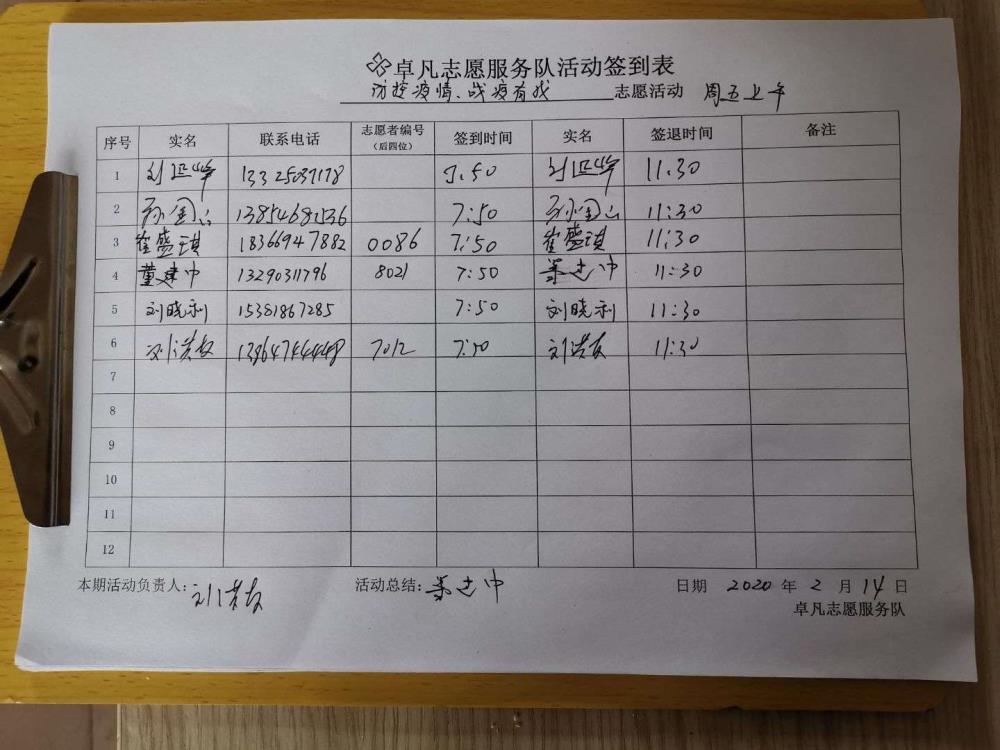 卓凡志愿服务队活动签到表
防控疫情、战疫有我 志愿活动 周五上午
序号 实名 联系电话 志愿者编号（后四位） 签到时间 实名 签退时间 备注
1 刘延华 13325037178 7.50 刘延华 11.30
2 孙国 7:50 孙国 11:30
3 崔盛琪 18366947882 0086 7:50 崔盛琪 11:30
4 董建中 13290311796 8021 7:50 董建中 11:30
5 刘晓利 15381867285 7:50 刘晓利 11:30
6 刘洪友 7012 7:50 刘洪友 11:30
7
8
9
10
11
12
本期活动负责人：刘洪友 活动总结：董建中 日期 2020 年 2 月 14 日
卓凡志愿服务队